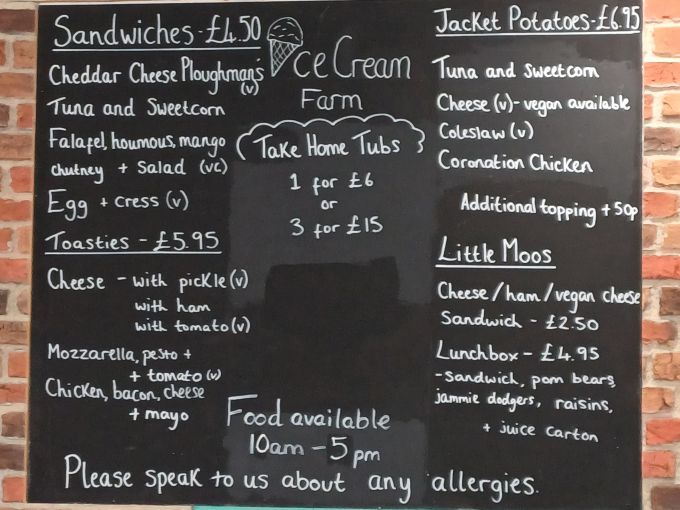 Sandwiches-£4.50
Cheddar Cheese Ploughman's
(v)
Tuna and Sweetcorn
Falafel, houmous, mango
chutney + Salad (vc)
Egg + cress (v)
Toasties - £5.95
Cheese - with pickle (v)
with ham
with tomato (v)
Mozzarella, pesto +
+ tomato (v)
Chicken, bacon, cheese
+ mayo
ce Cream
Farm
Take Home Tubs
1 for £6
or
3 for £15
Food available
10am - 5pm
Jacket Potatoes-£6.95
Tuna and Sweetcorn
Cheese (v)- vegan available
Coleslaw (v)
Coronation Chicken
Additional topping + 50p
Little Moos
Cheese/ham/vegan cheese
Sandwich - £2.50
Lunchbox - £4.95
-Sandwich, pom bears,
jammie dodgers, raisins,
+ juice carton
Please speak to us about any allergies.